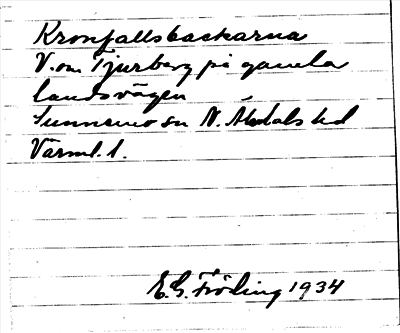 Kronfallsbackarna
V. om Tjurberg på gamla
landsvägen
Sunnemo sn N. Älvdals hd
Värml. l.
E. G. Fröling 1934